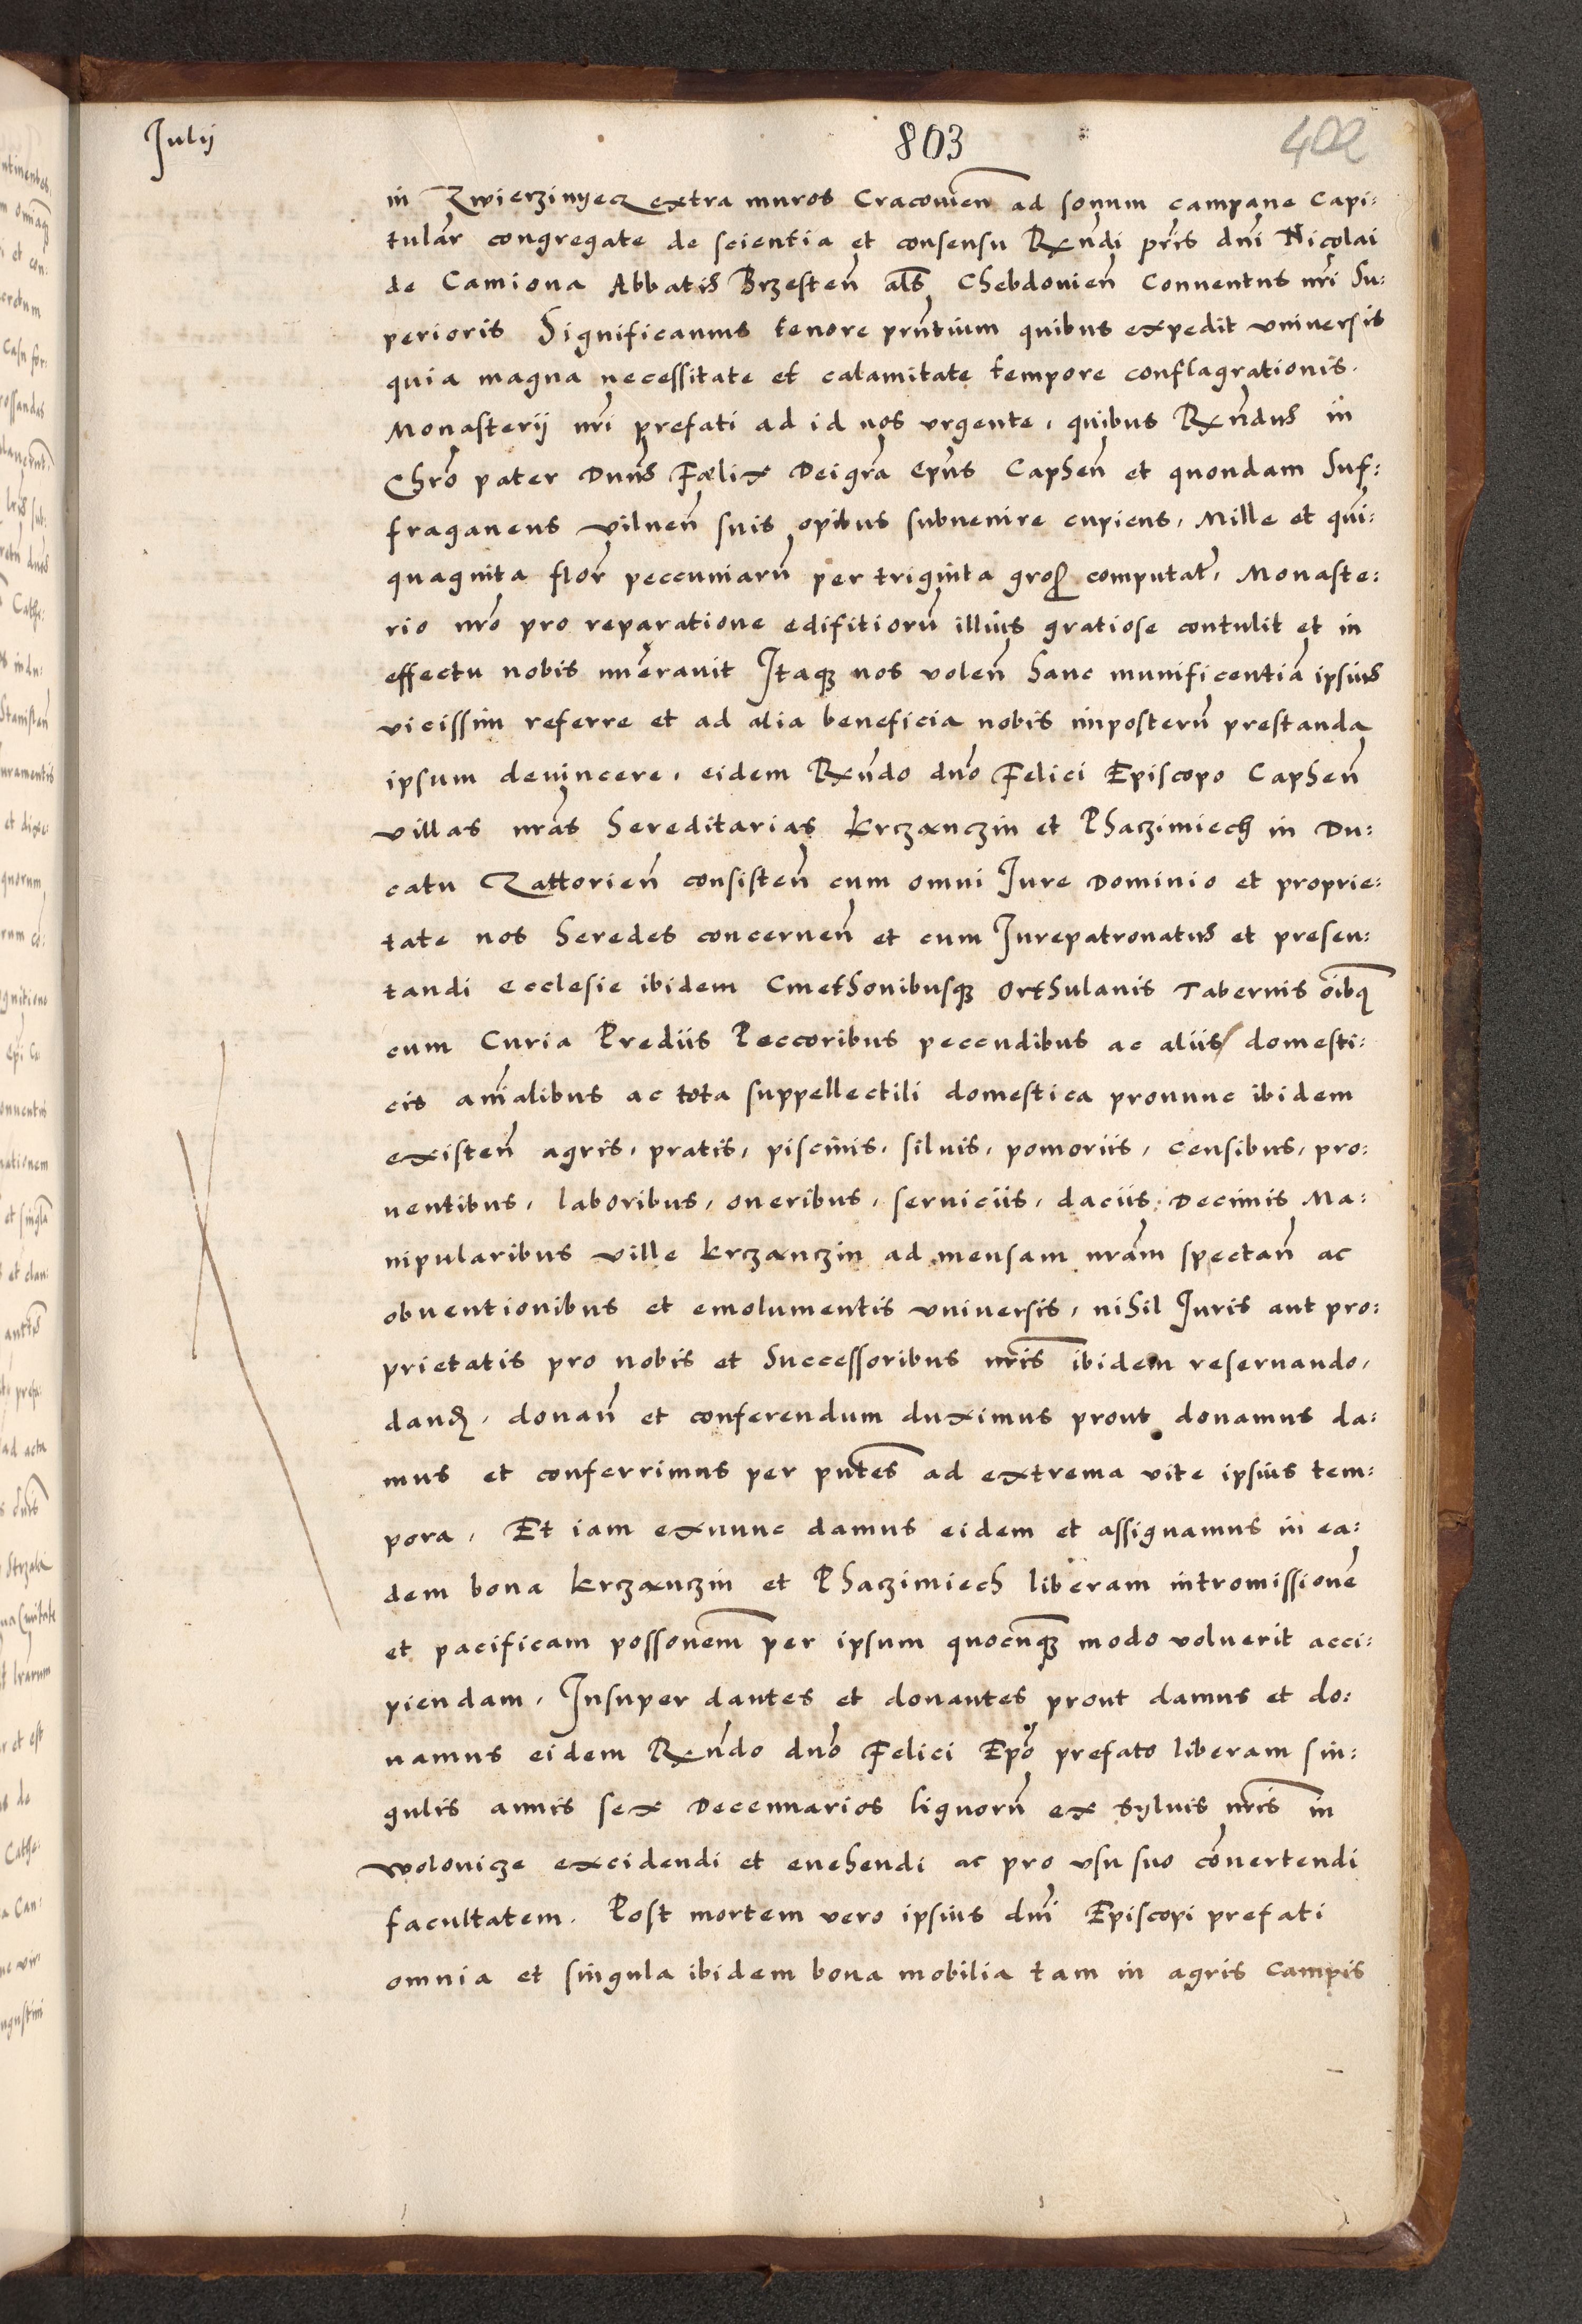 Julij
803
402
in Zwierzinyecz extra muros Cracovien̄ ad sonum campane Capi:
tular̄ congregate de scientia et consensu Rx̄ndi pr̄is dn̄i Nicolai
de Camiona Abbatis Brzesten̄ al̄s Chebdovien̄ Conventus nr̄i Su:
perioris Significamus tenore prn̄tium quibus expedit universis
quia magna necessitate et calamitate tempore conflagrationis
Monasterij nr̄i prefati ad id nos urgente, quibus Rx̄ndus in
Chr̄o pater Dn̄us Fælix Dei gr̄a Ep̄us Caphen̄ et quondam Suf:
fraganeus vilnen̄ suis opibus subvenire cupiens, Mille et qui:
quaginta flor̄ peccuniarū per triginta gros computat̄, Monaste:
rio nr̄o pro reparatione edifitiorū illius gratiose contulit et in
effectu nobis nūeravit Itaqꝫ nos volen̄ hanc munificentiā ipsius
vicissim referre et ad alia beneficia nobis imposterū prestanda
ipsum devincere, eidem Rx̄ndo dn̄o Felici Episcopo Caphen̄
villas nr̄as hereditarias Krczanczin et Phaczimiech in Du:
catu Zattorien̄ consisten̄ cum omni Jure Dominio et proprie:
tate nos heredes concernen̄ et cum Jurepatronatus et presen:
tandi ecclesie ibidem Cmethonibusqꝫ Orthulanis Tabernis oībꝫ
cum Curia Prediis Peccoribus pecudibus ac aliis domesti:
cis an̄ialibus ac tota suppellectili domestica pronunc ibidem
existen̄ agris, pratis, piscinis, silvis, pomoriis, censibus, pro:
ventibus, laboribus, oneribus, serviciis, daciis, Decimis Ma:
nipularibus ville Krczanczin ad mensam nr̄am spectan̄ ac
obventionibus et emolumentis universis, nihil Juris aut pro:
prietatis pro nobis et Successoribus nr̄is ibidem reservando,
dand, donan̄ et conferendum duximus prout donamus da:
mus et conferrimus per pn̄tes ad extrema vite ipsius tem:
pora, Et iam exnunc damus eidem et assignamus in ea:
dem bona Krczanczin et Phaczimiech liberam intromissionē
et pacificam possonem̄ per ipsum quocunqꝫ modo voluerit acci:
piendam, Insuper dantes et donantes prout damus et do:
namus eidem Rx̄ndo dn̄o Felici Ep̄o prefato liberam sin:
gulis annis sex Decennarios lignorū ex sylvis nr̄is in
wolovicze excidendi et evehendi ac pro usu suo cōvertendi
facultatem. Post mortem vero ipsius dn̄i Episcopi prefati
omnia et singula ibidem bona mobilia tam in agris campis